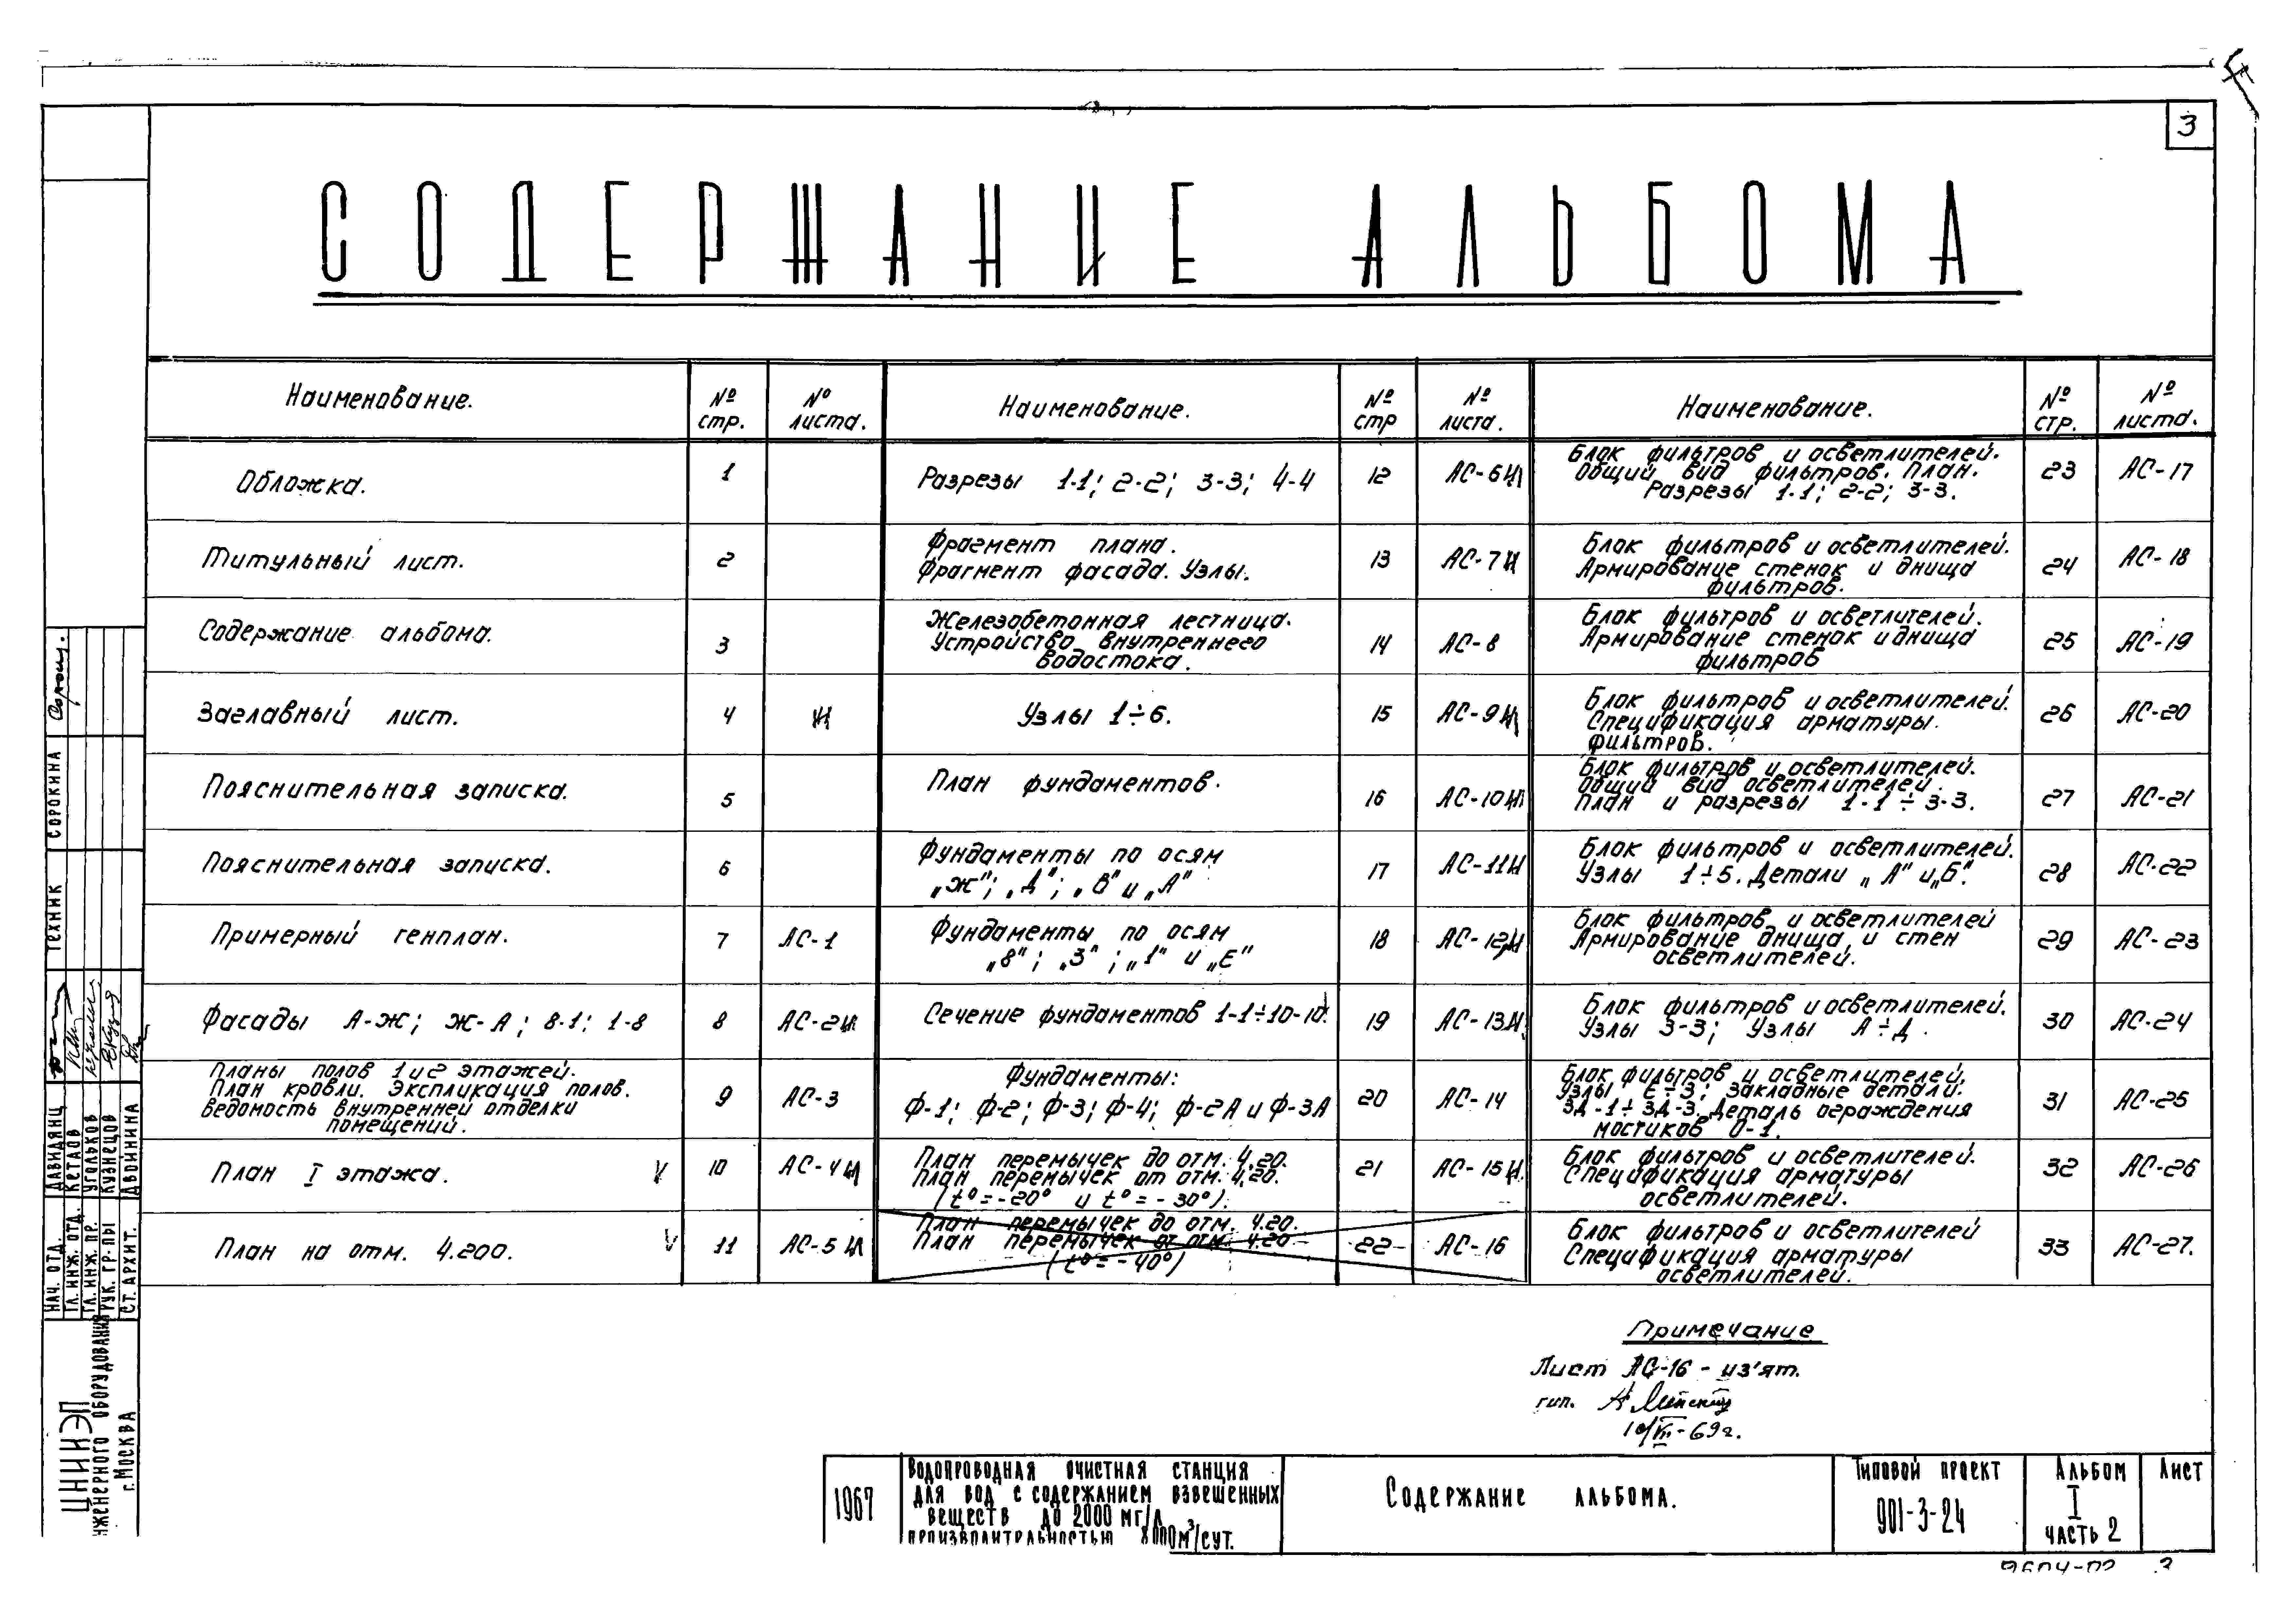 3
СОДЕРЖАНИЕ АЛЬБОМА
Наименование. № стр. № листа.
Обложка. 1
Титульный лист. 2
Содержание альбома. 3
Заглавный лист. 4 И
Пояснительная записка. 5
Пояснительная записка. 6
Примерный генплан. 7 АС-1
Фасады А-Ж; Ж-А; 8-1; 1-8 8 АС-2И
Планы полов 1 и 2 этажей.
План кровли. Экспликация полов.
Ведомость внутренней отделки
помещений. 9 АС-3
План I этажа. V 10 АС-4И
План на отм. 4.200. V 11 АС-5И
Наименование. № стр № листа.
Разрезы 1-1; 2-2; 3-3; 4-4 12 АС-6И
Фрагмент плана.
Фрагмент фасада. Узлы. 13 АС-7И
Железобетонная лестница.
Устройство внутреннего
водостока. 14 АС-8
Узлы 1÷6. 15 АС-9И
План фундаментов. 16 АС-10И
Фундаменты по осям
„Ж"; „Д"; „В" и „А" 17 АС-11И
Фундаменты по осям
„8"; „3"; „1" и „Е" 18 АС-12И
Сечение фундаментов 1-1÷10-10. 19 АС-13И
Фундаменты:
Ф-1; Ф-2; Ф-3; Ф-4; Ф-2А и Ф-3А 20 АС-14
План перемычек до отм. 4.20.
План перемычек от отм. 4.20.
(t°=-20° и t°=-30°). 21 АС-15И
План перемычек до отм. 4.20.
План перемычек от отм. 4.20
(t°=-40°) 22 АС-16
Наименование. № стр. № листа.
Блок фильтров и осветлителей.
Общий вид фильтров. План.
Разрезы 1-1; 2-2; 3-3. 23 АС-17
Блок фильтров и осветлителей.
Армирование стенок и днища
фильтров. 24 АС-18
Блок фильтров и осветлителей.
Армирование стенок и днища
фильтров 25 АС-19
Блок фильтров и осветлителей.
Спецификация арматуры
фильтров. 26 АС-20
Блок фильтров и осветлителей.
Общий вид осветлителей.
План и разрезы 1-1÷3-3. 27 АС-21
Блок фильтров и осветлителей.
Узлы 1÷5. Детали „А" и „Б". 28 АС-22
Блок фильтров и осветлителей
Армирование днища и стен
осветлителей. 29 АС-23
Блок фильтров и осветлителей.
Узлы 3-3; Узлы А÷Д. 30 АС-24
Блок фильтров и осветлителей.
Узлы Е÷З; Закладные детали.
ЗД-1÷ЗД-3. Деталь ограждения
мостиков О-1. 31 АС-25
Блок фильтров и осветлителей.
Спецификация арматуры
осветлителей. 32 АС-26
Блок фильтров и осветлителей
Спецификация арматуры
осветлителей. 33 АС-27.
Примечание
Лист АС-16 - из'ят.
гип.
10/VII-69г.
1967
Водопроводная очистная станция
для вод с содержанием взвешенных
веществ до 2000 мг/л
производительностью 8000м³/сут.
Содержание альбома.
Типовой проект
901-3-24
Альбом
I
часть 2
Лист
9604-02 3
Техник Сорокина
Нач. отд. Давидянц
Гл. инж. отд. Кетаов
Гл. инж. пр. Угольков
Рук. гр-пы Кузнецов
Ст. архит. Двойнина
ЦНИИЭП
инженерного оборудования
г. Москва